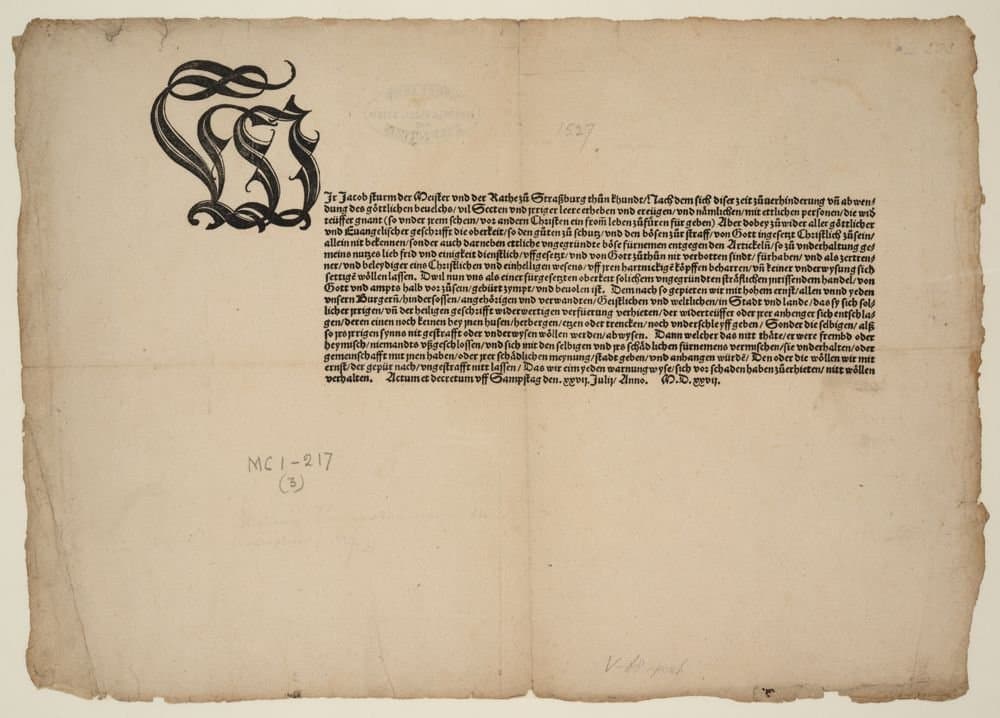 1527
WIr Jacob sturm der Meister vnd der Rathe zů Straßburg thůn khundt/ Nach dem sich diser zeit zůuerhinderung vñ abwen-
dung des göttlichen beuelchs/ vil Secten vnd jrriger leere erheben vnd ereügen/ vnd nämlichen/ mit ettlichen personen/ die wid
teüffer gnant (so vnder jrem schein/ vor andern Christen ein from̃ leben zůfüren für geben) Aber dobey zůwider aller göttlicher
vnd Euangelischer geschrifft die oberkeit/ so den gůten zů schutz/ vnd den bösen zůr straff/ von Gott ingesetzt Christlich zůsein/
allein nit bekennen/ sonder auch darneben ettliche vngegründte böse fürnemen entgegen den Artickelñ/ so zů vnderhaltung ge-
meins nutzes lieb frid vnd einigkeit dienstlich/ vffgesetzt/ vnd von Gott zůthůn nit verbotten sindt/ fürhaben/ vnd als zertren-
ner/ vnd beleydiger eins Christlichen vnd einhelligen wesens/ vff jren hartnuckigē köpffen beharren/ vñ keiner vnderwysung sich
settigē wöllen lassen. Dwil nun vns als einer fürgesetzten oberkeit solichem vngegründten sträflichen jnrissenden handel/ von
Gott vnd ampts halb vor zůsen/ gebürt zympt/ vnd beuolen ist. Dem nach so gepieten wir mit hohem ernst/ allen vnnd yeden
vnsern Burgern/ hindersossen/ angehörigen vnd verwandten/ Geistlichen vnd weltlichen/ in Stadt vnd lande/ das sy sich sol-
licher jrrigen/ vñ der heiligen geschrifft widerwertigen verfüerung verhieten/ der widerteüffer oder jrer anhenger sich entschla-
gen/ deren einen noch keinen bey jnen husen/ herbergen/ etzen oder trencken/ noch vnderschleyff geben/ Sonder die selbigen/ alß
so jro jrrigen synns nit gestrafft oder vnderwysen wöllen werden/ abwysen. Dann welcher das nitt thäte/ er were frembd oder
heymisch/ niemandts vßgeschlossen/ vnd sich mit den selbigen vnd jrs schädlichen fürnemens vermischen/ sie vnderhalten/ oder
gemeinschafft mit jnen haben/ oder jrer schädlichen meynung/ stadt geben/ vnd anhangen würde/ Den oder die wöllen wir mit
ernst/ der gepür nach/ vngestrafft nitt lassen/ Das wir eim yeden warnung wyse/ sich vor schaden haben zůerhieten/ nitt wöllen
verhalten. Actum et decretum vff Sampstag den. xxvij. Julij/ Anno. M. D. xxvij.
MC 1-217
(3)